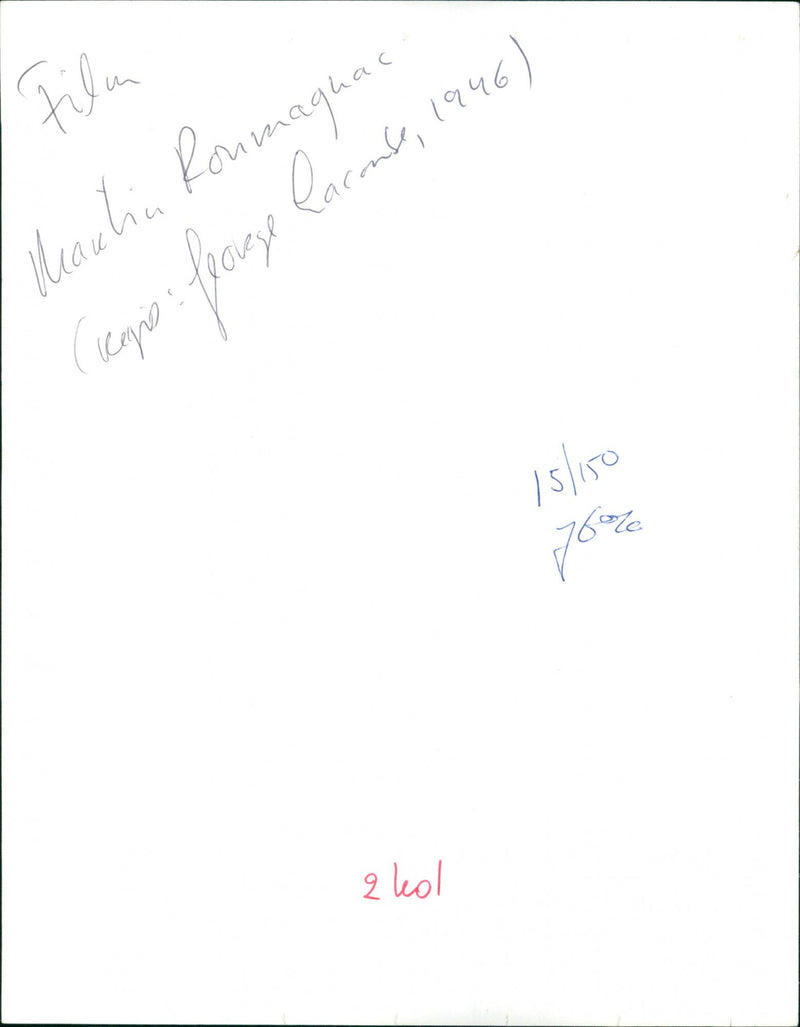 Film
Martin Roumagnac
(regi: George Lacombe, 1946)
15/150
76%
2 kol